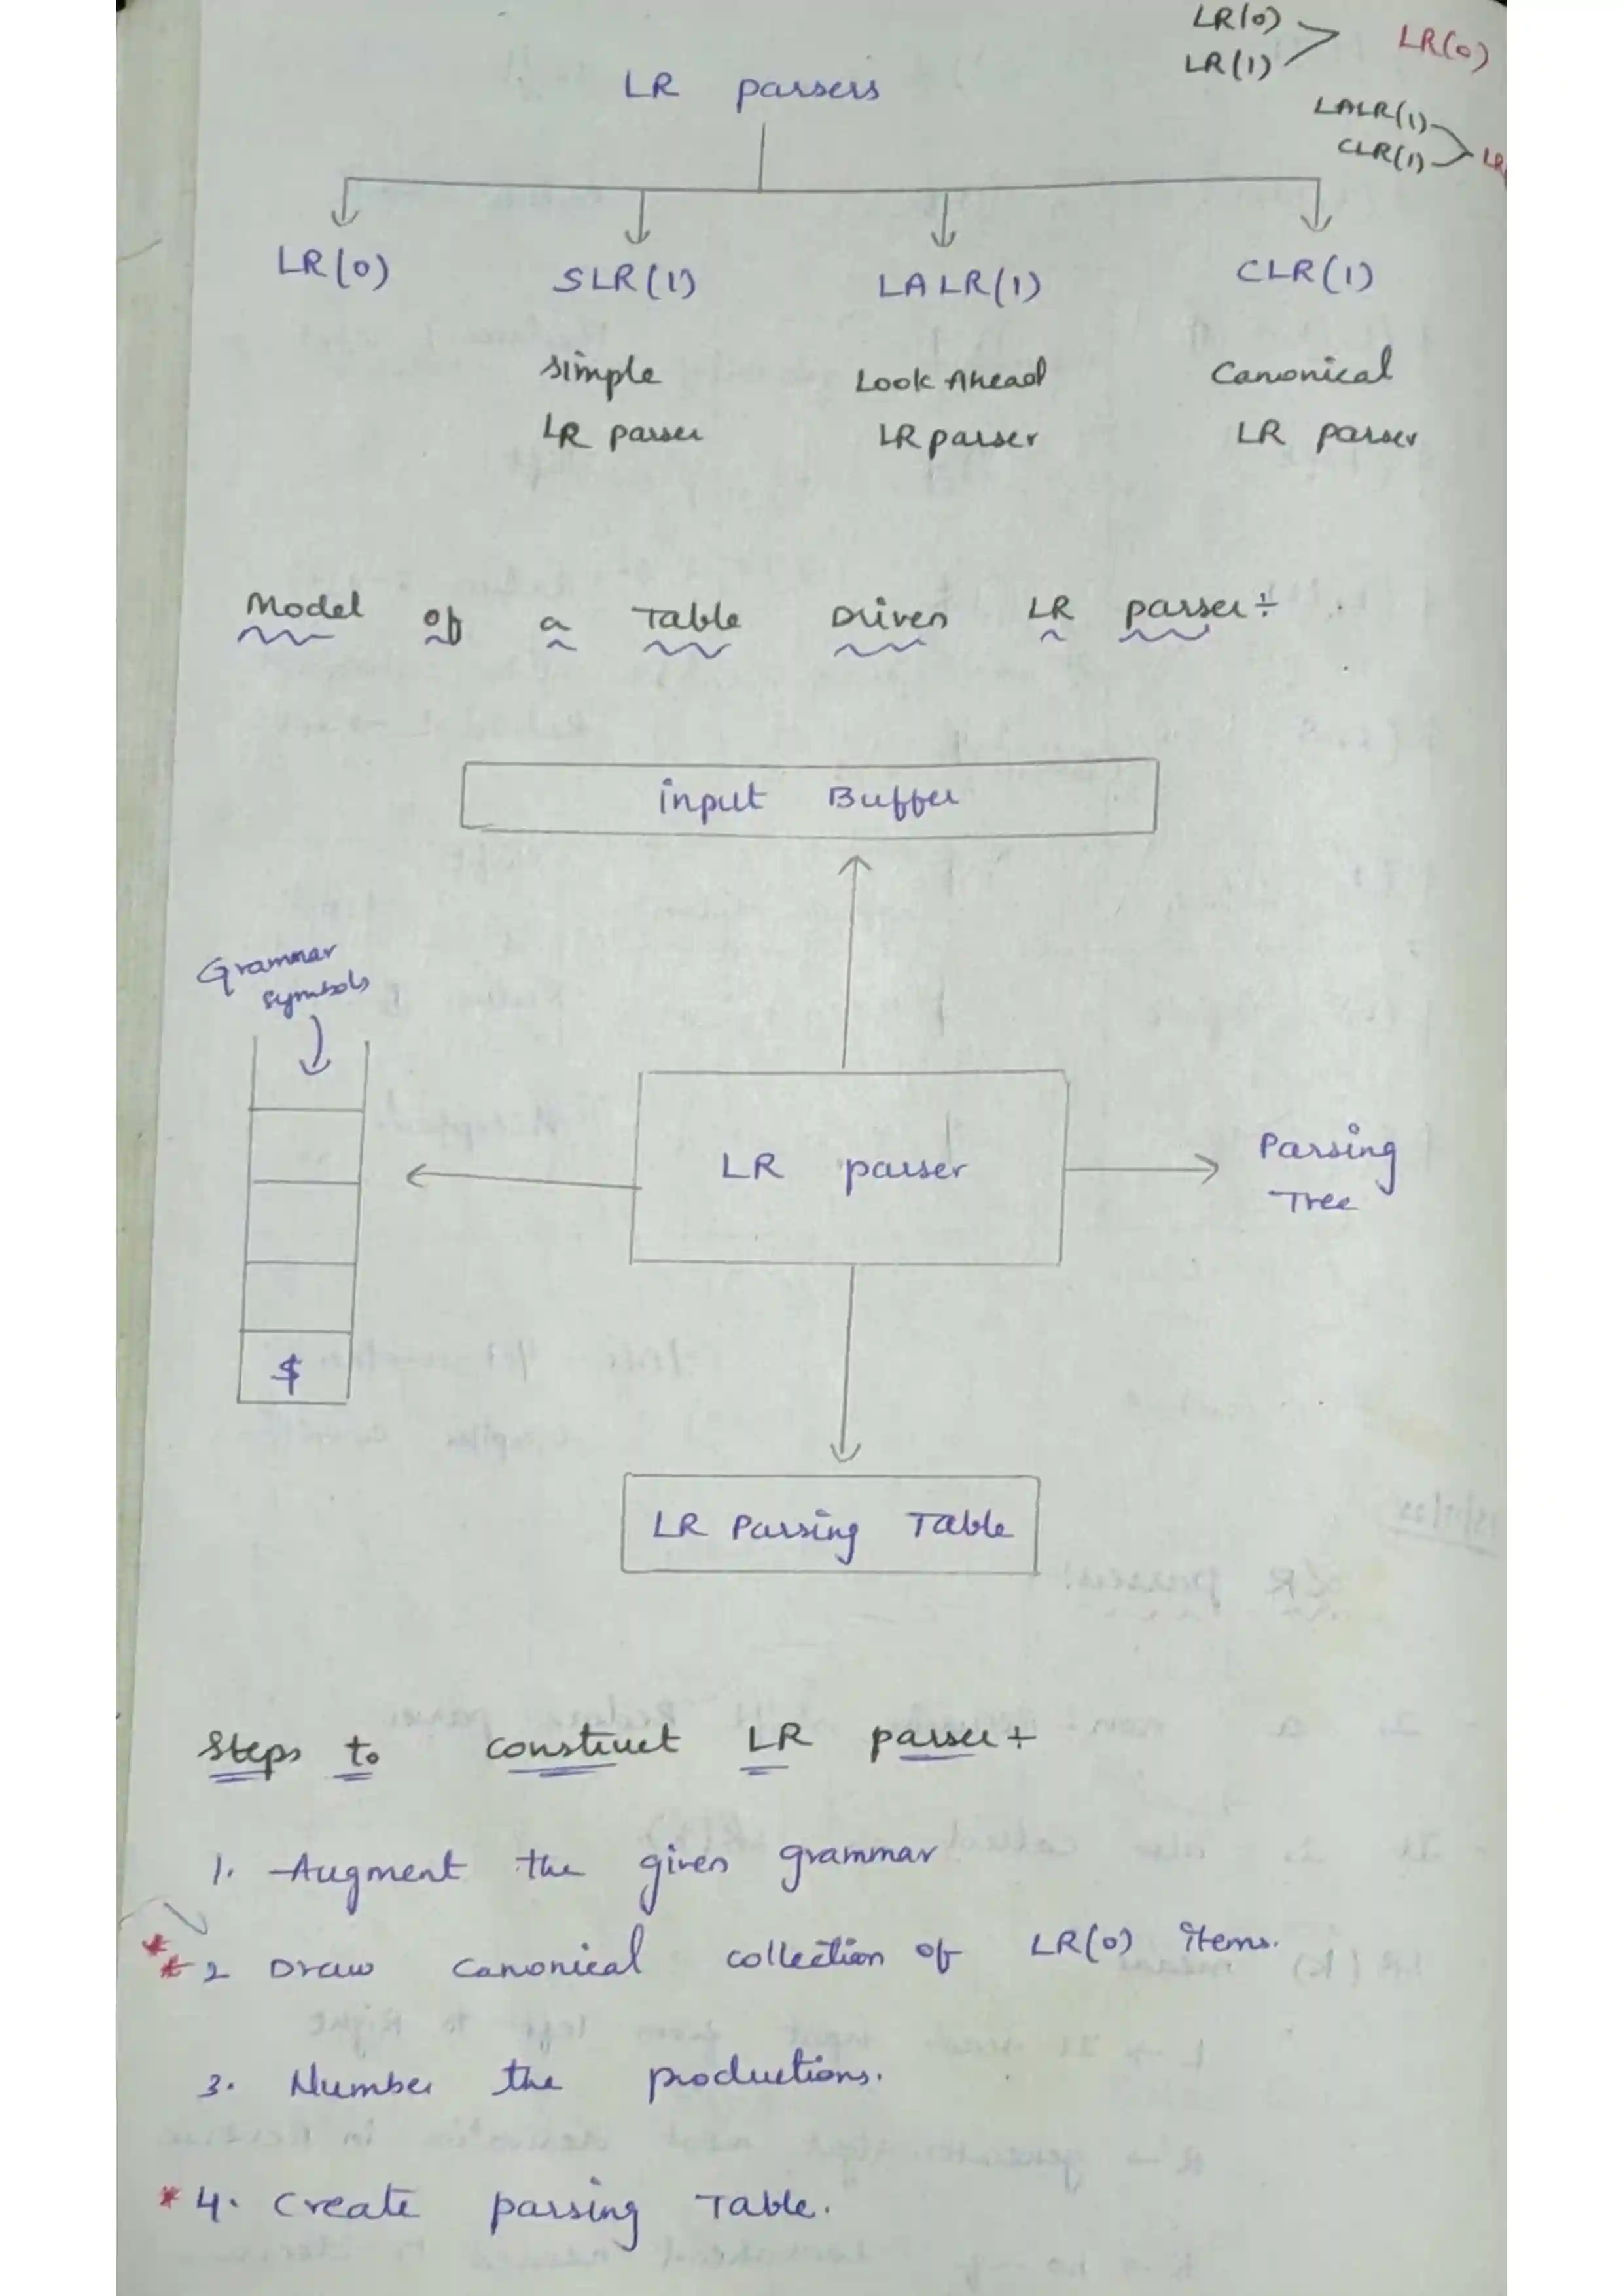 LR(0)
LR(1)
LR(0)
LALR(1)
CLR(1)
LR parsers
LR(0)
SLR(1)
LALR(1)
CLR(1)
Simple
LR parser
Look Ahead
LR parser
Canonical
LR parser
Model of a Table Driven LR parser÷
input Buffer
Grammar
symbols
$
LR parser
Parsing
Tree
LR Parsing Table
Steps to construct LR parser÷
1. Augment the given grammar
**2 Draw canonical collection of LR(0) items.
3. Number the productions.
*4. Create parsing Table.